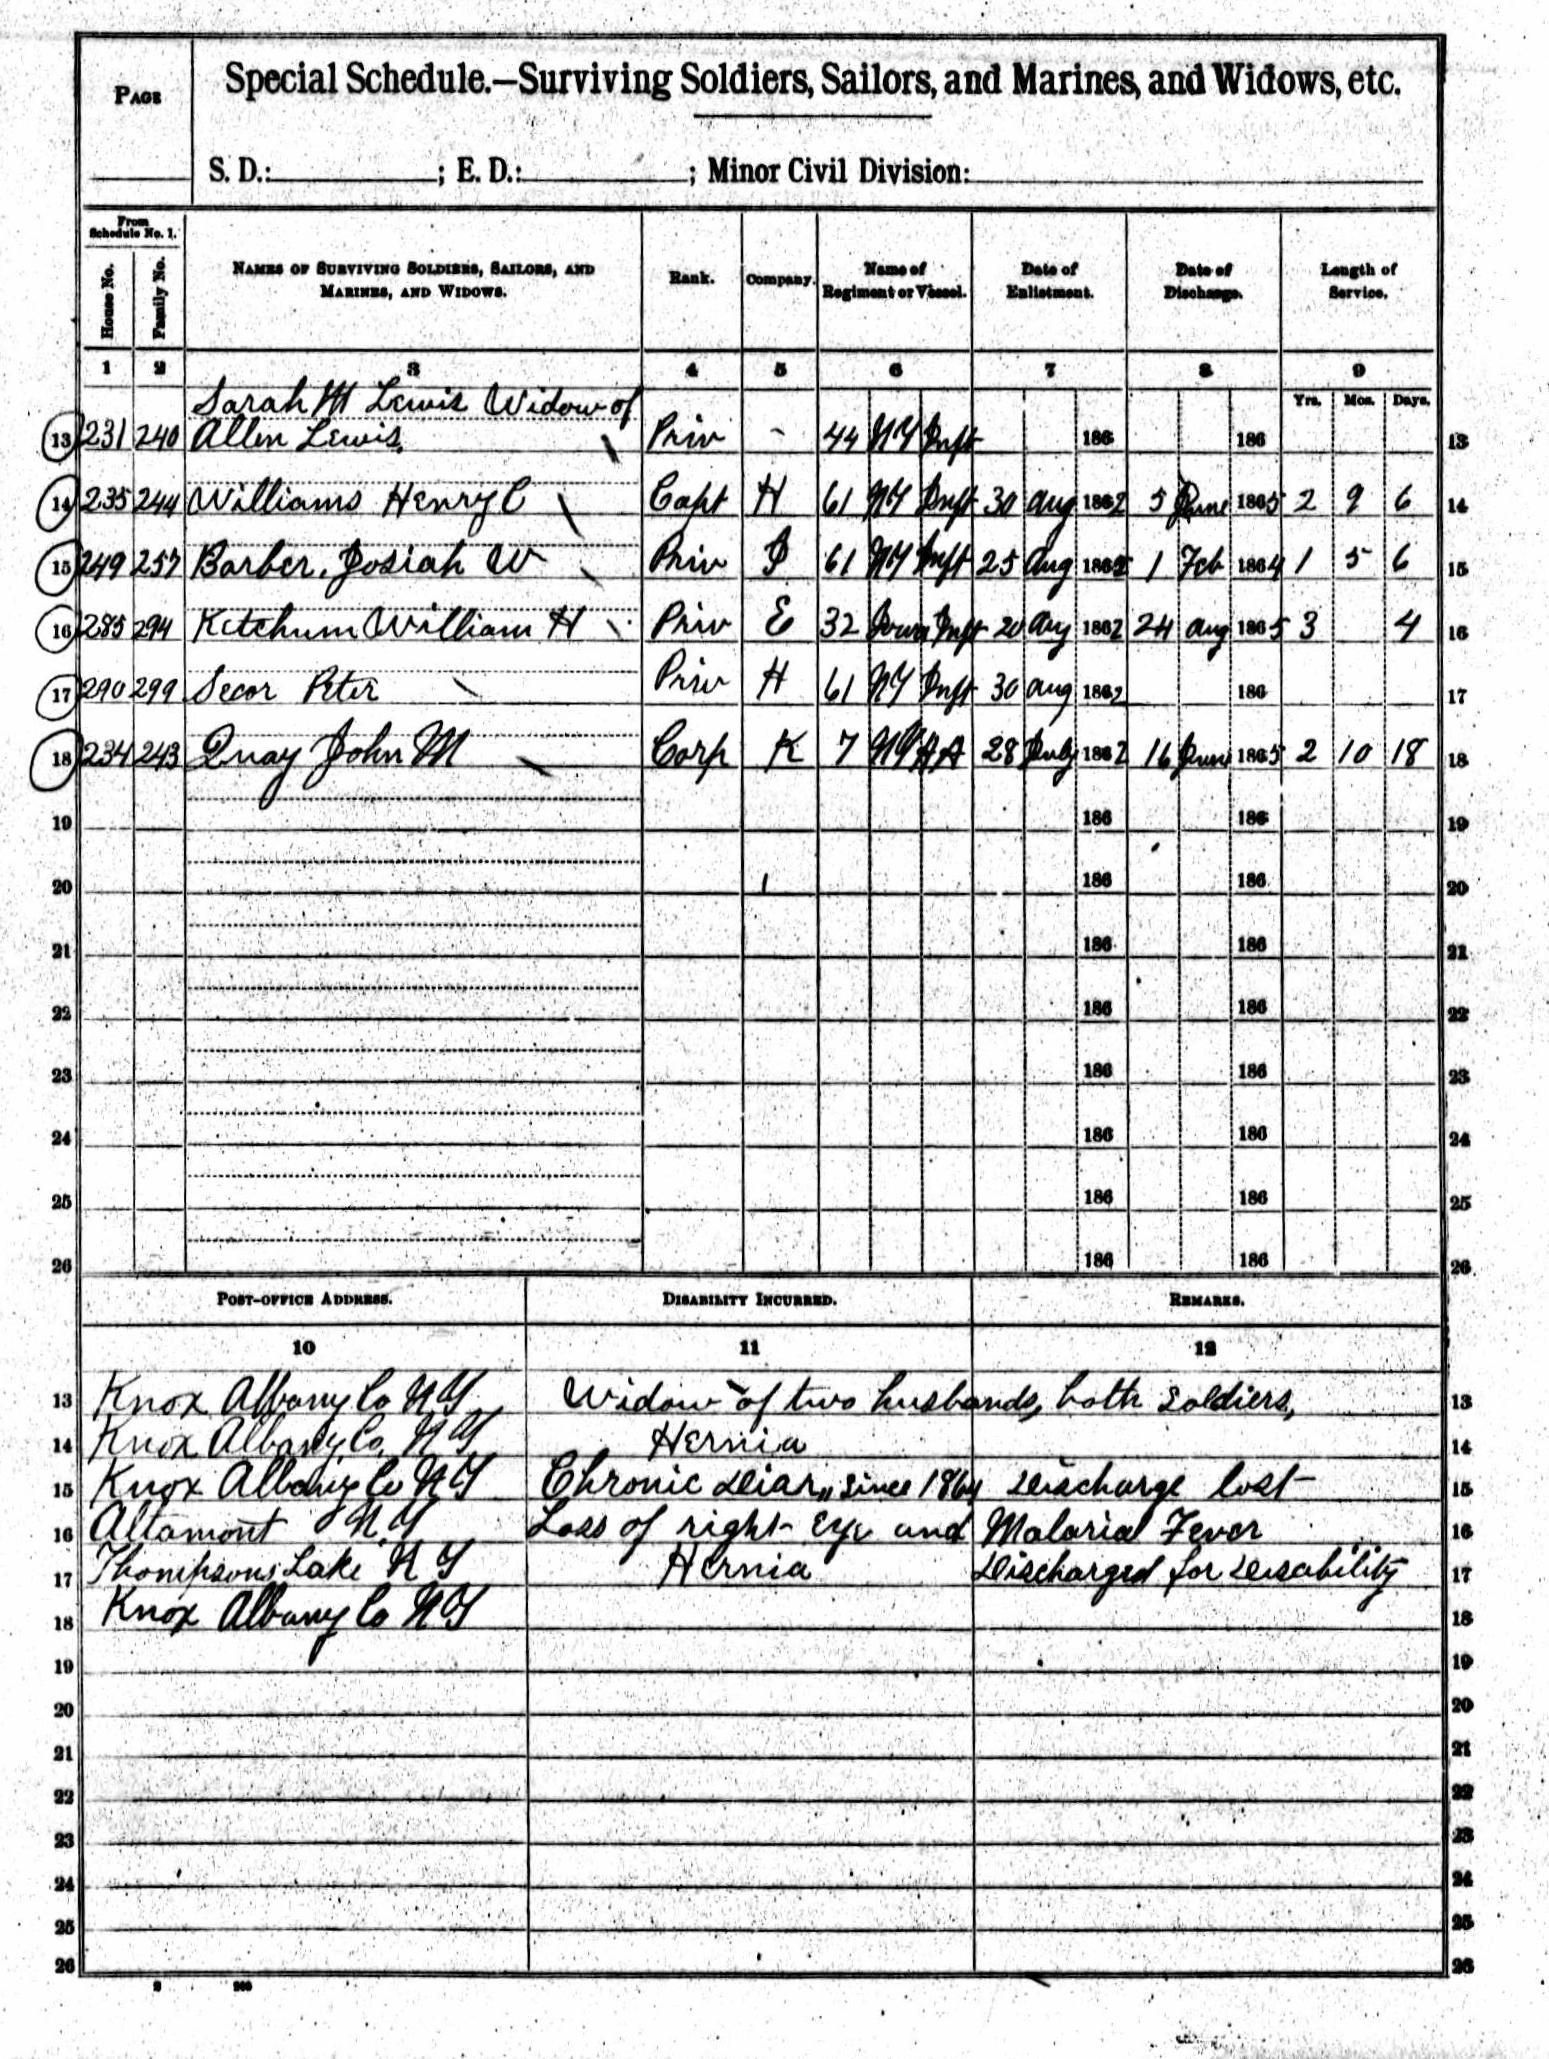 PAGE
Special Schedule.—Surviving Soldiers, Sailors, and Marines, and Widows, etc.
S. D.: ; E. D.: ; Minor Civil Division:
From Schedule No. 1.
House No. Family No. NAMES OF SURVIVING SOLDIERS, SAILORS, AND MARINES, AND WIDOWS. Rank. Company. Name of Regiment or Vessel. Date of Enlistment. Date of Discharge. Length of Service.
1 2 3 4 5 6 7 8 9
Yrs. Mos. Days.
Sarah M Lewis Widow of
13 231 240 Allen Lewis. Priv - 44 NY Inft 186 186 13
14 235 244 Williams Henry C Capt H 61 NY Inft 30 Aug 1862 5 June 1865 2 9 6 14
15 249 257 Barber, Josiah W Priv I 61 NY Inft 25 Aug 1862 1 Feb 1864 1 5 6 15
16 285 294 Ketchum William H Priv E 32 Iowa Inft 20 Aug 1862 24 Aug 1865 3 4 16
17 290 299 Secor Peter Priv H 61 NY Inft 30 Aug 1862 186 17
18 234 243 Quay John M Corp K 7 NY H A 28 July 1862 16 June 1865 2 10 18 18
19 186 186 19
20 186 186 20
21 186 186 21
22 186 186 22
23 186 186 23
24 186 186 24
25 186 186 25
26 186 186 26
POST-OFFICE ADDRESS. DISABILITY INCURRED. REMARKS.
10 11 12
13 Knox Albany Co N Y Widow of two husbands, both soldiers, 13
14 Knox Albany Co. N Y Hernia 14
15 Knox Albany Co N Y Chronic Diar,, since 1864 Discharge lost 15
16 Altamont N. Y Loss of right Eye and Malarial Fever 16
17 Thompsons Lake N Y Hernia Discharged for Disability 17
18 Knox Albany Co N Y 18
19 19
20 20
21 21
22 22
23 23
24 24
25 25
26 26